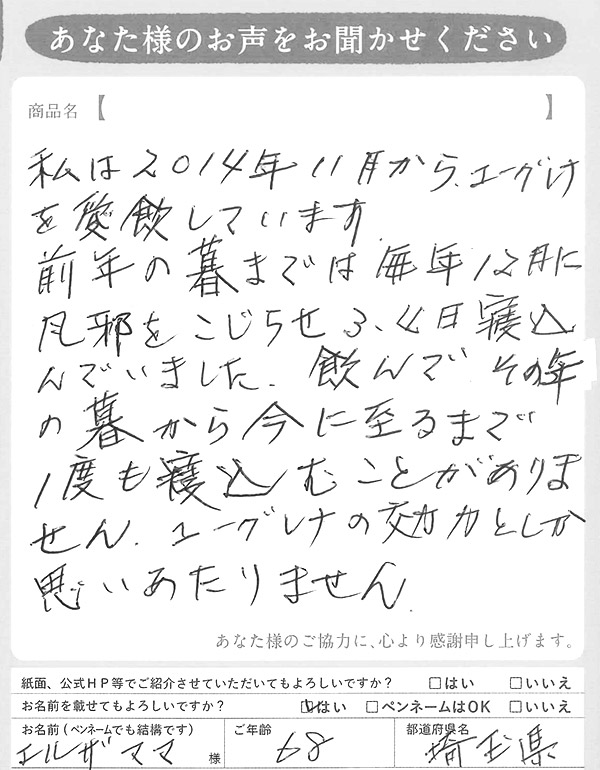 あなた様のお声をお聞かせください
商品名【 】
私は2014年11月から、ユーグレナ
を愛飲しています
前年の暮までは毎年12月に
風邪をこじらせ3、4日寝込
んでいました。飲んで その年
の暮から今に至るまで
1度も寝込むことがありま
せん。ユーグレナの効力としか
思いあたりません。
あなた様のご協力に、心より感謝申し上げます。
紙面、公式HP等でご紹介させていただいてもよろしいですか? □はい □いいえ
お名前を載せてもよろしいですか? ☑はい □ペンネームはOK □いいえ
お名前(ペンネームでも結構です) ご年齢 都道府県名
エルザママ 様 68 埼玉県